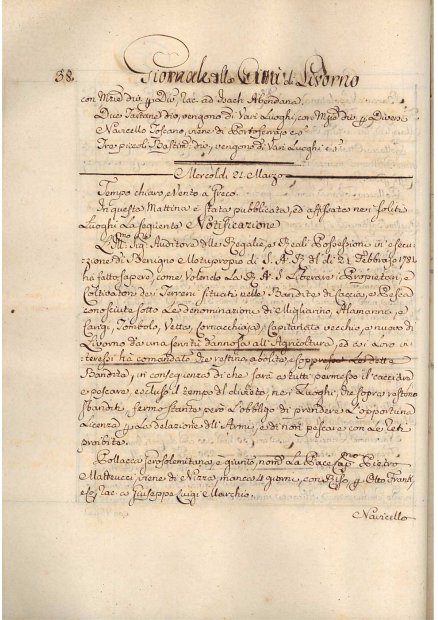 38. Giornale della Città di Livorno
con Mzie div. p Div. Rac. ad Isach Abendana.
Due Tartane div. vengono di Vari Luoghi, con Mzie div. p Diversi
Navicello Toscano, viene di Portoferraio
Tre piccoli Bastim. div. vengono di Vari Luoghi
Mercoldì 21 Marzo
Tempo chiaro, e Vento a Greco.
In questa Mattina è stata pubblicata, ed affissa ne i soliti
Luoghi La seguente Notificazione
L'Ill.mo Sig. Auditore delle Regalie, e Reali Possessioni in esecu-
zione di Benigno Motuproprio di S. A. R. del dì 21 Febbraio 1781
ha fatto sapere, come Volendo La R. A. S. Liberare i Proprietari, e
Coltivatori dei Terreni situati nelle Bandite di Caccia, e Pesca
conosciute sotto Le denominazioni di Migliarino, Alamanna, e
Sargi, Tombolo, Vetta, Cornacchiaia, Capitanato vecchio, e nuovo di
Livorno da una servitù dannosa all'Agricoltura, ed ai Loro in-
teressi ha comandato che restino abolite, e soppresse Le dette
Bandite, in conseguenza di che sarà a tutti permesso il cacciare
e pescare, escluso il tempo del divieto, nei Luoghi, che sopra restono
sbanditi, fermo stante però L'obbligo di prendere L'opportuna
Licenza p La delazione dell'Armi, e di non pescare con Le reti
proibite.
Pollacca Gerosolimitana, è giunto, nom. La Pace Cap.no Pietro
Matteucci, viene di Nizza, manca 4 giorni, con Riso, p Otto Frank,
e Rac. a Giuseppe Luigi Marchio.
Navicello